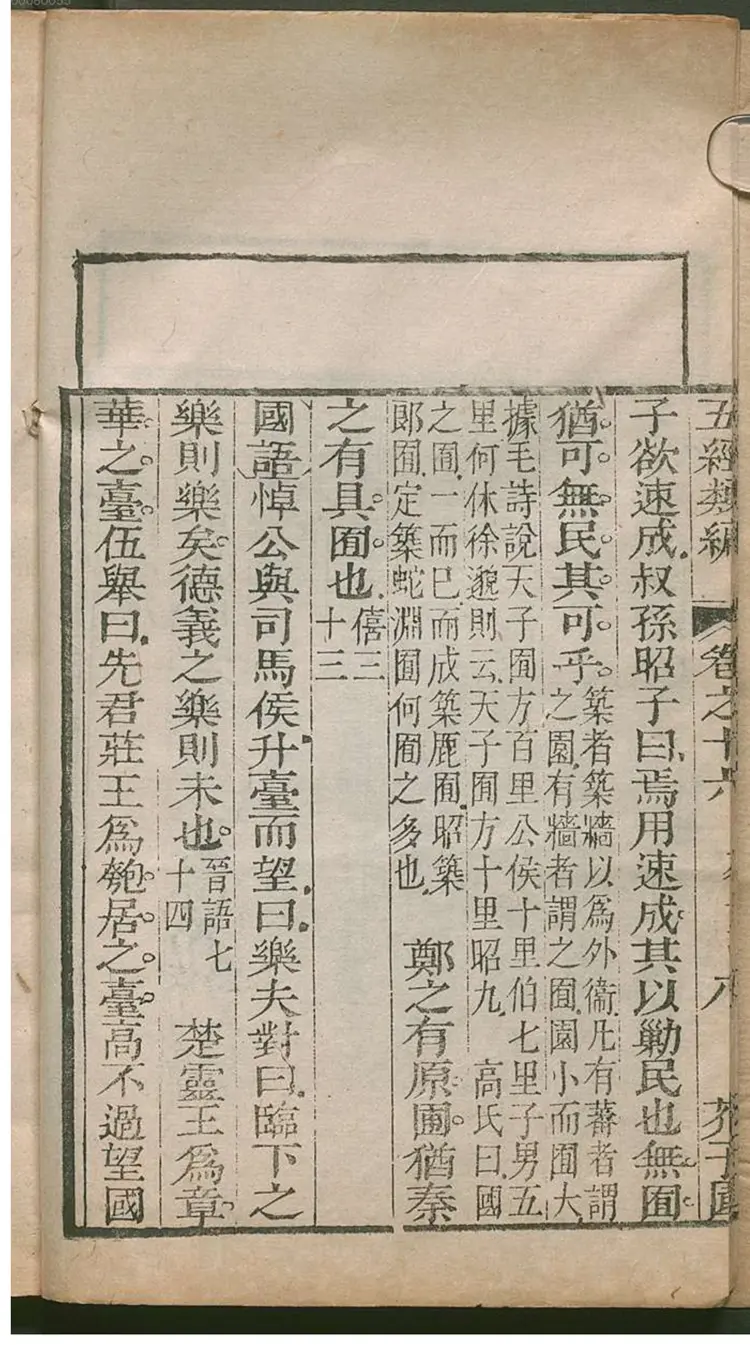 00080055
五經類編 卷之十六 八 芥子園
子欲速成叔孫昭子曰焉用速成其以勦民也無囿
猶可無民其可乎
築者築牆以爲外衞凡有蕃者謂
之園有牆者謂之囿園小而囿大
據毛詩說天子囿方百里公侯十里伯七里子男五
里何休徐邈則云天子囿方十里昭九 高氏曰國
之囿一而已而成築鹿囿昭築
郞囿定築蛇淵囿何囿之多也
鄭之有原圃猶秦
之有具囿也
僖三
十三
國語悼公與司馬侯升臺而望曰樂夫對曰臨下之
樂則樂矣德義之樂則未也
晉語七
十四
楚靈王爲章
華之臺伍舉曰先君莊王爲匏居之臺高不過望國